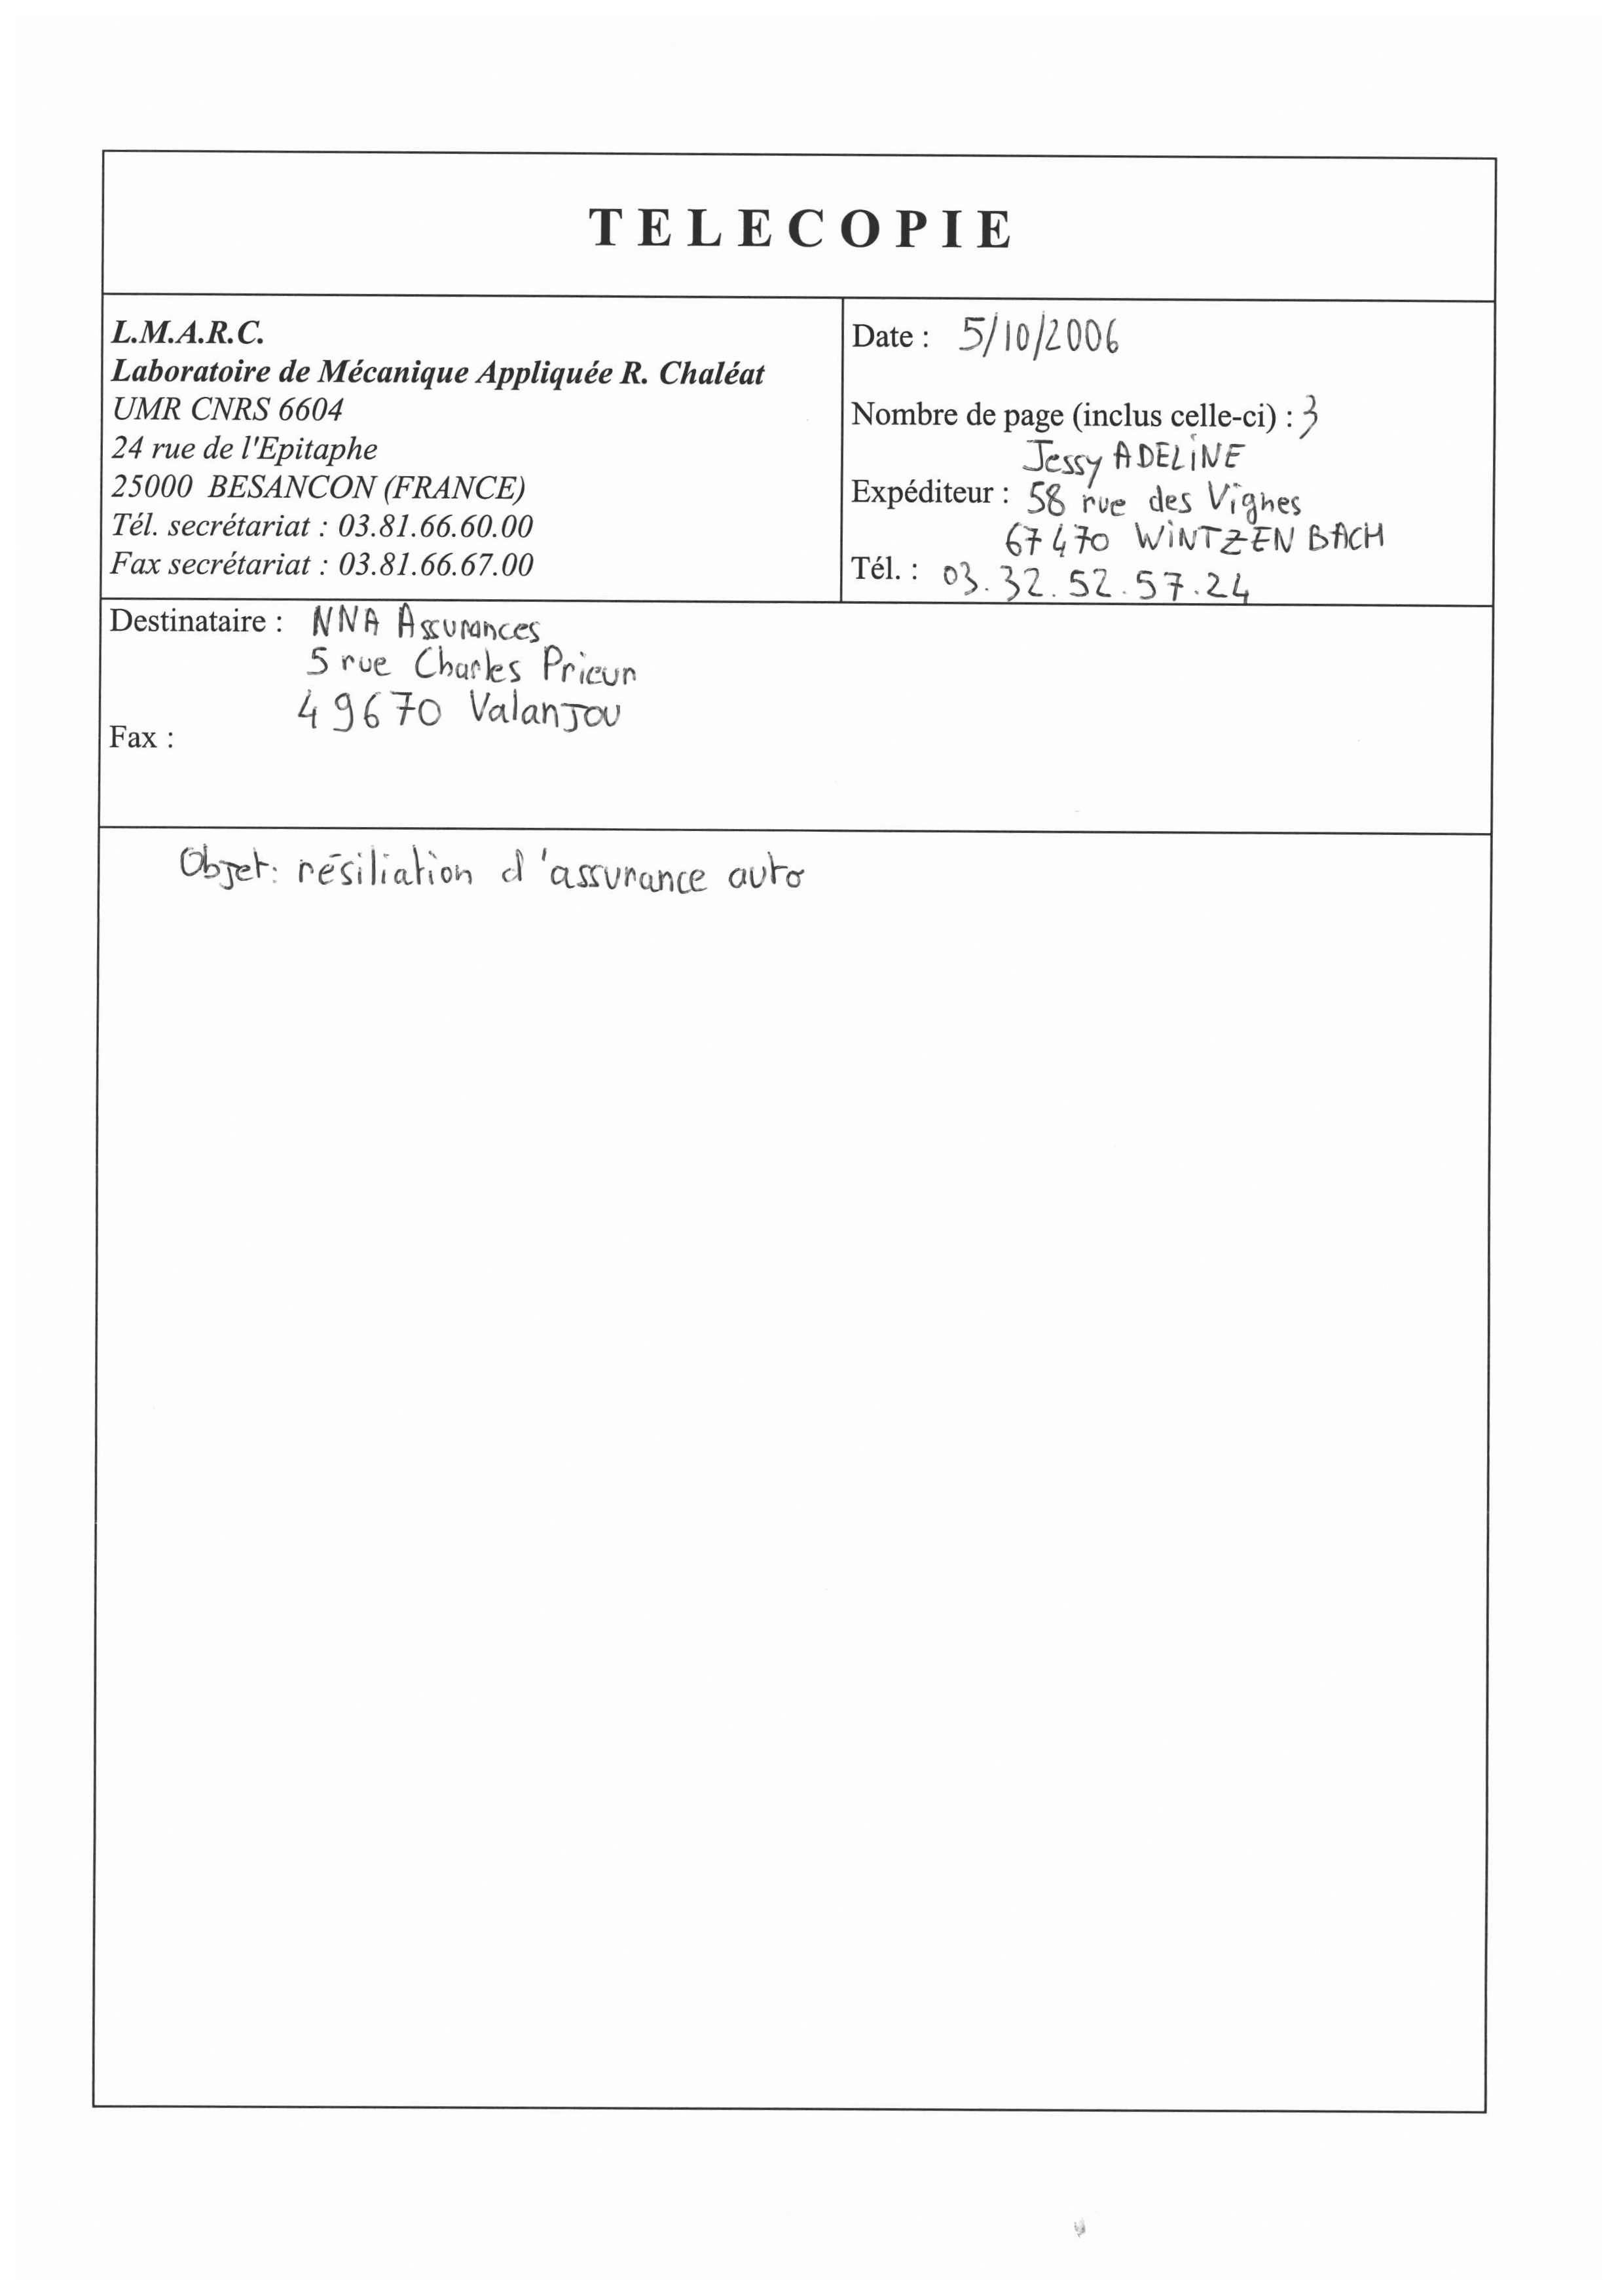 TELECOPIE
L.M.A.R.C.
Laboratoire de Mécanique Appliquée R. Chaléat
UMR CNRS 6604
24 rue de l'Epitaphe
25000 BESANCON (FRANCE)
Tél. secrétariat : 03.81.66.60.00
Fax secrétariat : 03.81.66.67.00
Date : 5/10/2006
Nombre de page (inclus celle-ci) : 3
Jessy ADELINE
Expéditeur : 58 rue des Vignes
67470 WINTZENBACH
Tél. : 03.32.52.57.24
Destinataire : NNA Assurances
5 rue Charles Prieur
49670 Valanjou
Fax :
Objet: résiliation d'assurance auto